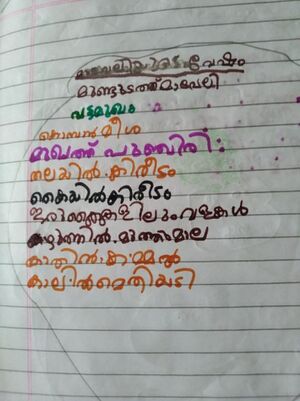 മാവേലിയുടെ വേഷം
മുണ്ടുടുത്ത് മാവേലി
വട്ടമുഖം
കൊമ്പൻ മീശ
മുഖത്ത് പുഞ്ചിരി:
തലയിൽ കിരീടം
കൈയിൽ കിരീടം
ഇരുകൈകളിലും വളകൾ
കഴുത്തിൽ മുത്തുമാല
കാതിൽ കമ്മൽ
കാലിൽ മെതിയടി